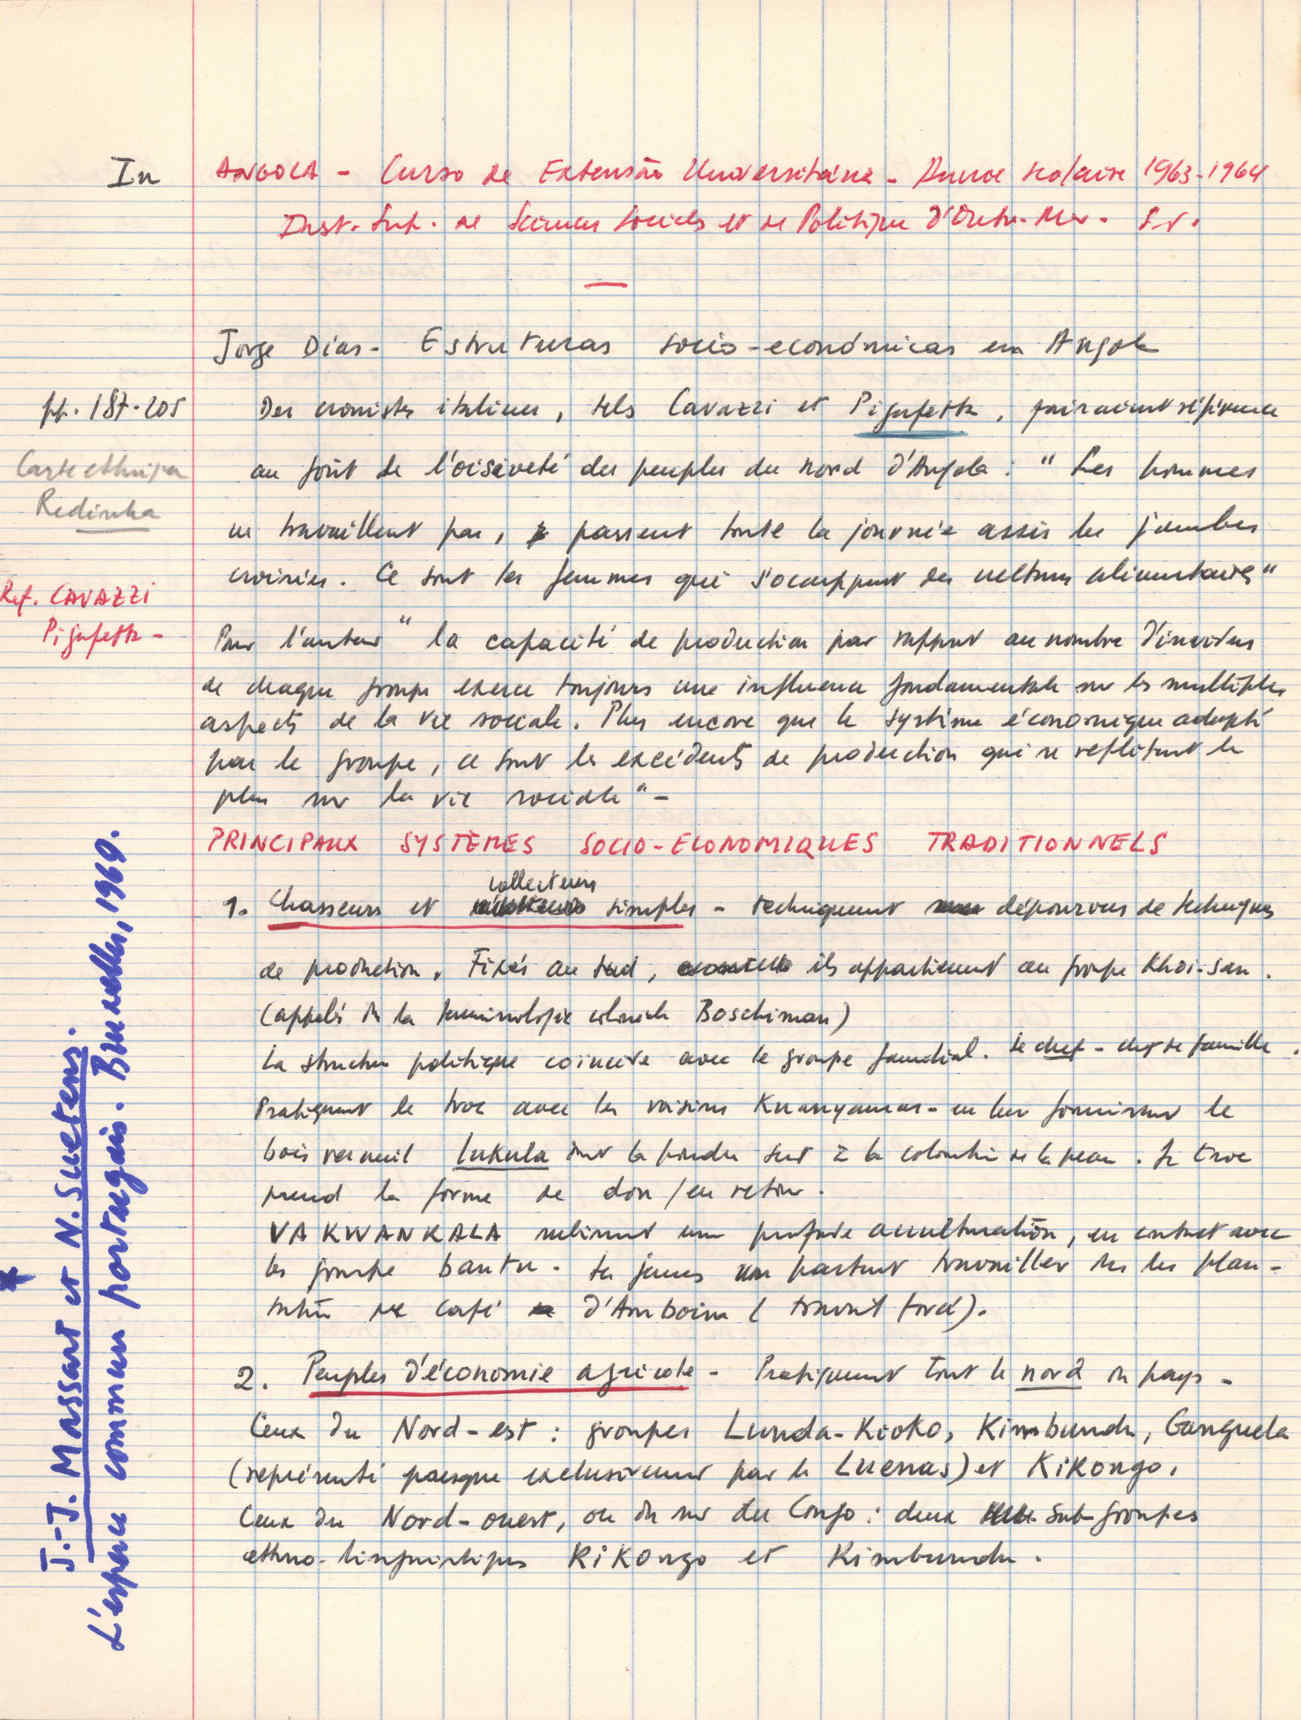 In ANGOLA - Curso de Extensão Universitária - Année scolaire 1963-1964
Inst. Sup. de Sciences Sociales et de Politique d'Outre-Mer. S.v.
Jorge Dias - Estruturas socio-económicas em Angola
pp. 187-205
Des cronistes italiens, tels Cavazzi et Pigafetta, faisaient référence
Carte ethnique
Redinha
au goût de l'oisiveté des peuples du nord d'Angola : "Les hommes
ne travaillent pas, passent toute la journée assis les jambes
croisées. Ce sont les femmes qui s'occuppent des cultures alimentaires"
Ref. CAVAZZI
Pigafetta -
Pour l'auteur "la capacité de production par rapport au nombre d'individus
de chaque groupe exerce toujours une influence fondamentale sur les multiples
aspects de la vie sociale. Plus encore que le système économique adopté
par le groupe, ce sont les excédents de production qui se reflètent le
plus sur la vie sociale" -
PRINCIPAUX SYSTÈMES SOCIO-ECONOMIQUES TRADITIONNELS
1. Chasseurs et collecteurs simples - techniquement dépourvus de techniques
de production. Fixés au sud, ils appartiennent au groupe Khoi-san.
(appelés dans la terminologie coloniale Boschiman)
La structure politique coincide avec le groupe familial. Le chef - chef de famille.
Pratiquent le troc avec les voisins Kuanyamas - en leur fournissant le
bois vermeil lukula dont la poudre sert à la coloration de la peau. Le troc
prend la forme de don / en retour.
VAKWANKALA subissent une profonde acculturation, en contact avec
les groupe bantu. Les jeunes partent travailler dans les plan-
tations de café d'Amboim (travail forcé).
2. Peuples d'économie agricole - Pratiquement tout le nord du pays -
Ceux du Nord-est : groupes Lunda-Kioko, Kimbundu, Ganguela
(représenté presque exclusivement par les Luenas) et Kikongo.
Ceux du Nord-ouest, ou du sud du Congo : deux sub-groupes
ethno-linguistiques Kikongo et Kimbundu.
J.-J. Massart et N. Suetens.
L'espace commun portugais. Bruxelles, 1969.
*